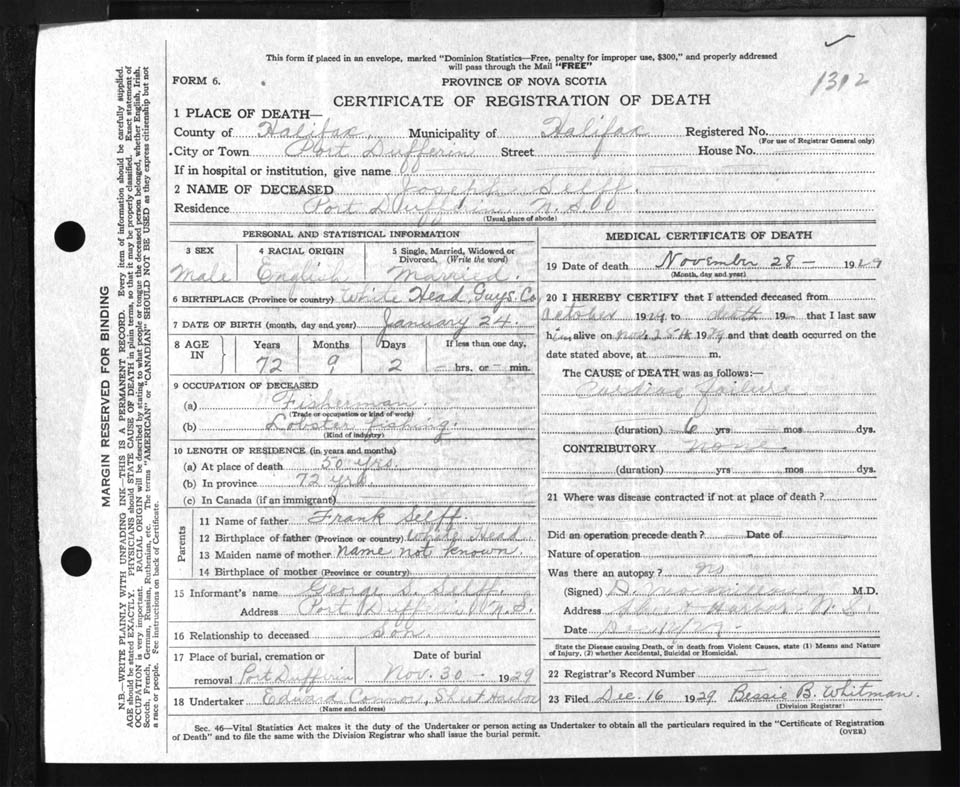 This form if placed in an envelope, marked "Dominion Statistics—Free, penalty for improper use, $300," and properly addressed
will pass through the Mail "FREE"
1312
FORM 6.
PROVINCE OF NOVA SCOTIA
CERTIFICATE OF REGISTRATION OF DEATH
1 PLACE OF DEATH—
County of Halifax, Municipality of Halifax Registered No.
(For use of Registrar General only)
City or Town Port Dufferin Street House No.
If in hospital or institution, give name
2 NAME OF DECEASED Joseph Selff.
Residence Port Dufferin, N.S.
(Usual place of abode)
PERSONAL AND STATISTICAL INFORMATION
3 SEX 4 RACIAL ORIGIN 5 Single, Married, Widowed or
Divorced, (Write the word)
Male English Married.
6 BIRTHPLACE (Province or country) White Head, Guys. Co
7 DATE OF BIRTH (month, day and year) January 24.
8 AGE IN Years Months Days If less than one day,
72 9 2 — hrs. or — min.
9 OCCUPATION OF DECEASED
(a) Fisherman.
(Trade or occupation or kind of work)
(b) Lobster fishing.
(Kind of industry)
10 LENGTH OF RESIDENCE (in years and months)
(a) At place of death 50 yrs.
(b) In province 72 yrs.
(c) In Canada (if an immigrant)
Parents
11 Name of father Frank Selff.
12 Birthplace of father (Province or country) White Head
13 Maiden name of mother name not known.
14 Birthplace of mother (Province or country)
15 Informant's name George S. Selff.
Address Port Dufferin, N.S.
16 Relationship to deceased Son.
17 Place of burial, cremation or Date of burial
removal Port Dufferin Nov. 30 — 1929
18 Undertaker Edward Connors, Sheet Harbor
(Name and address)
MEDICAL CERTIFICATE OF DEATH
19 Date of death November 28 — 1929
(Month, day and year)
20 I HEREBY CERTIFY that I attended deceased from
October 1929 to death 19— that I last saw
him alive on Nov. 25th 1929 and that death occurred on the
date stated above, at m.
The CAUSE of DEATH was as follows:—
Cardiac failure
(duration) 6 yrs — mos dys.
CONTRIBUTORY none
(duration) yrs mos dys.
21 Where was disease contracted if not at place of death?
Did an operation precede death? Date of
Nature of operation
Was there an autopsy? no
(Signed) D. M.D.
Address Sheet Harbor N.S.
Date Dec 12/29.
State the Disease causing Death, or in death from Violent Causes, state (1) Means and Nature
of Injury, (2) whether Accidental, Suicidal or Homicidal.
22 Registrar's Record Number —
23 Filed Dec. 16 1929 Bessie B. Whitman.
(Division Registrar)
Sec. 46—Vital Statistics Act makes it the duty of the Undertaker or person acting as Undertaker to obtain all the particulars required in the "Certificate of Registration
of Death" and to file the same with the Division Registrar who shall issue the burial permit.
(OVER)
MARGIN RESERVED FOR BINDING
N.B.—WRITE PLAINLY WITH UNFADING INK—THIS IS A PERMANENT RECORD. Every item of information should be carefully supplied.
AGE should be stated EXACTLY. PHYSICIANS should STATE CAUSE OF DEATH in plain terms, so that it may be properly classified. Exact statement of
OCCUPATION is very important. RACIAL ORIGIN will be described by stating to what people or tongue the deceased person belonged, whether English, Irish,
Scotch, French, German, Russian, Ruthenian, etc. The terms "AMERICAN" or "CANADIAN" SHOULD NOT BE USED as they express citizenship but not
a race or people. Fee instructions on back of Certificate.